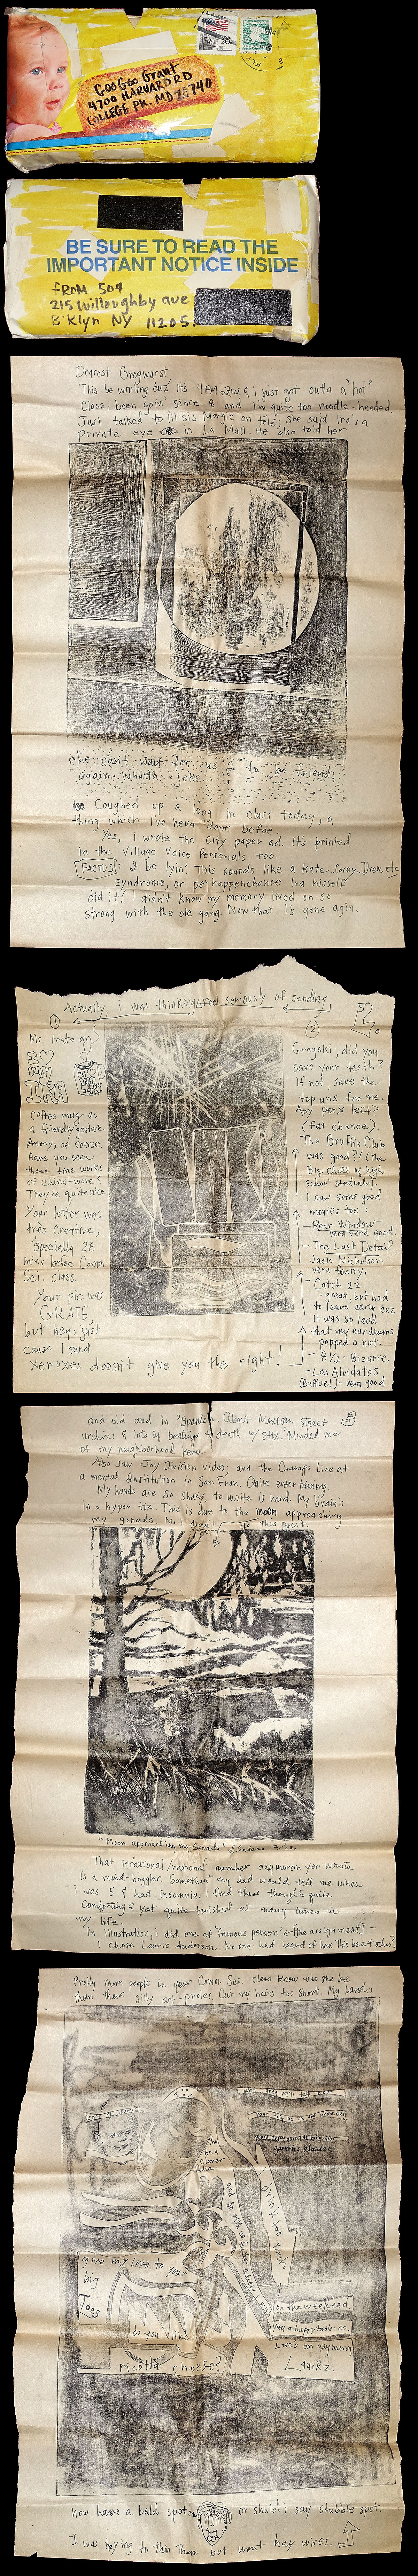 GooGoo Grant
4700 HARVARD RD
COLLEGE PK. MD 20740
USA 20c
BE SURE TO READ THE
IMPORTANT NOTICE INSIDE
fROM 504
215 Willoughby ave
B'Klyn NY 11205
Dearest Grogwurst
This be writing cuz its 4 PM & i just got outta a "hot"
Class, been goin' since 8 and I'm quite too noodle-headed.
Just talked to lil sis Margie on tele; she said Ira's a
private eye in a Mall. He also told her
he can't wait for us 2 to be friends
again. Whatta joke.
Coughed up a loog in class today, a
thing which I've never done before.
Yes, I wrote the City paper ad. It's printed
in the Village Voice Personals too.
FACTUS: I be lyin! This sounds like a Kate.. Corey.. Drew, etc
syndrome, or perhappenchance Ira hisself
did it! I didn't know my memory lived on so
strong with the ole gang. Now that I's gone agin.
Actually, i was thinking reel seriously of sending
1
Mr. Irate an
I ♥
MY
IRA
Coffee mug as
a friendly gesture.
Anony, of course.
Have you seen
these fine works
of China-ware?
They're quite nice.
Your letter was
très Creative,
'specially 28
mins before Comm.
Sci. class.
Your pic was
GRATE,
but hey, just
cause I send
Xeroxes doesn't give you the right!
2
Gregski, did you
save your teeth?
If not, save the
top uns for me.
Any perx left?
(fat chance).
The Bruffis Club
was good?! (The
Big chill of high
school students).
I saw some good
movies too:
- Rear Window -
very very good.
- The Last Detail
Jack Nicholson
very funny.
- Catch 22
- great, but had
to leave early cuz
it was so loud
that my ear drums
popped a nut.
- 8 1/2: Bizarre.
- Los Alvidatos
(Buñuel) - very good
and old and in Spanish. About Mexican street
urchins & lots of beating to death w/ stix. Minded me
of my neighborhood here.
Also saw Joy Division video; and the Cramps Live at
a mental Institution in San Fran. Quite entertaining.
My hands are so shaky, to write is hard. My brain's
in a hyper tiz. This is due to the moon approaching
my gonads. No i didn't do this print.
"Moon approaching my Gonads"
That irrational/national number oxymoron you wrote
is a mind-boggler. Somethin' my dad would tell me when
i was 5 & had insomnia. I find these thoughts quite
Comforting & yet quite twisted at many times in
my life.
In illustration, i did one of "famous persons" ← [the assignment] -
I chose Laurie Anderson. No one had heard of her. This be art school?
Prolly more people in your Comm. Sci. class know who she be
than these silly art-proles. Cut my hairs too short. My bands
you
be a
clever
fella
and so with no further adieu
drink too much
give my love to your
big
Toes
do you like
ricotta cheese?
on the weekend.
you a happy toodle-oo.
Love's an oxymoron
Lgurkz.
now have a bald spot or should i say stubble spot.
I was trying to thin them but went hay wires.